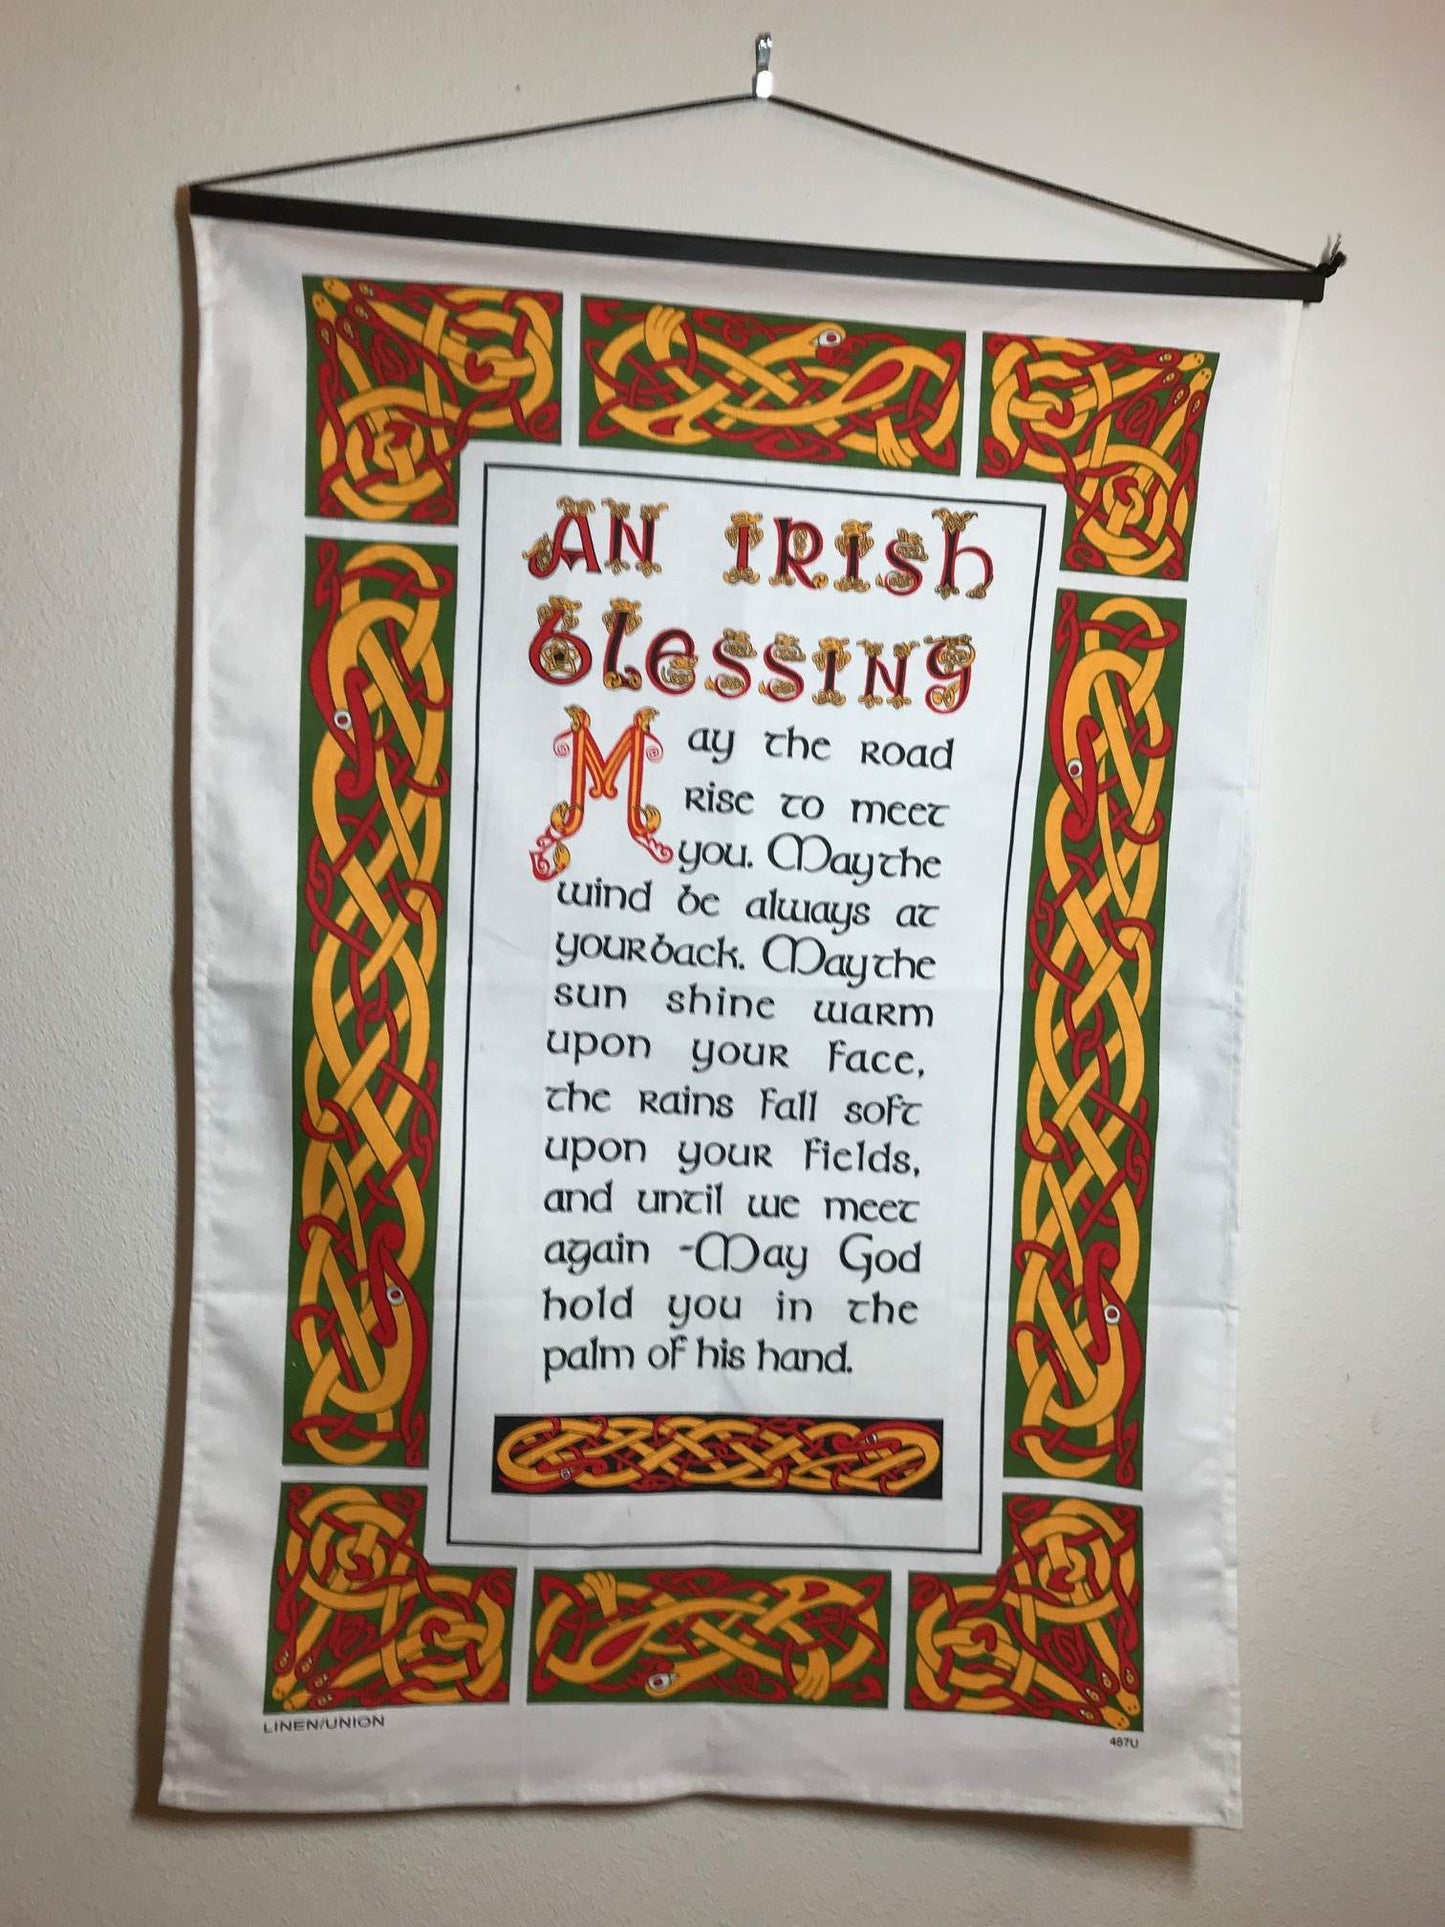 AN IRISh
blessINg
May the road
rise to meet
you. May the
wind be always at
your back. May the
sun shine warm
upon your face,
the rains fall soft
upon your fields,
and until we meet
again - May God
hold you in the
palm of his hand.
LINEN/UNION
487U